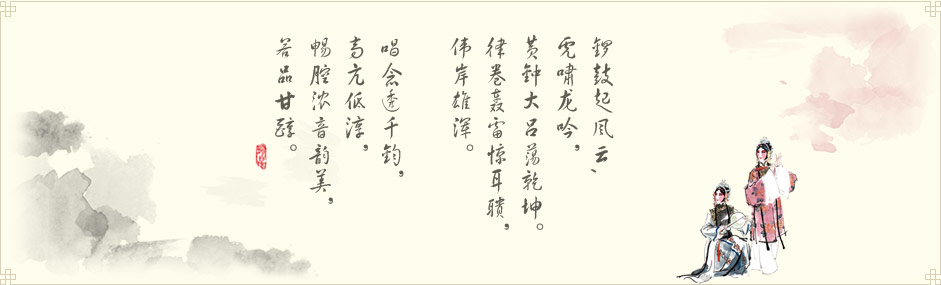 锣鼓起风云、
虎啸龙吟，
黄钟大吕荡乾坤。
律卷轰雷惊耳聩，
伟岸雄浑。
唱念透千钧，
高亢低淳，
畅腔浓音韵美，
若品甘醇。